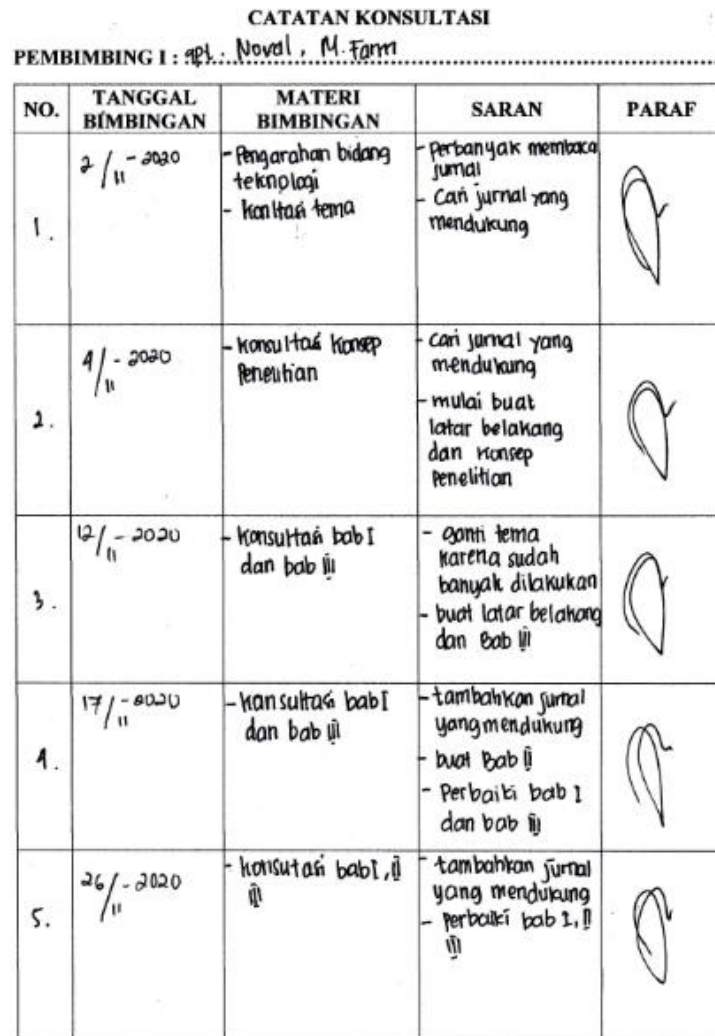 CATATAN KONSULTASI
PEMBIMBING I : apt. Noval, M.Farm
NO.
TANGGAL
BIMBINGAN
MATERI
BIMBINGAN
SARAN
PARAF
1.
2/11-2020
- Pengarahan bidang
teknologi
- konltasi tema
- Perbanyak membaca
jurnal
- Cari jurnal yang
mendukung
2.
4/11-2020
- konsultasi konsep
Penelitian
- cari jurnal yang
mendukung
- mulai buat
latar belakang
dan konsep
penelitian
3.
12/11-2020
- konsultasi bab I
dan bab III
- ganti tema
karena sudah
banyak dilakukan
- buat latar belakang
dan Bab III
4.
17/11-2020
- konsultasi bab I
dan bab III
- tambahkan jurnal
yang mendukung
- buat Bab II
- Perbaiki bab I
dan bab III
5.
26/11-2020
- konsutasi bab I, II
III
- tambahkan jurnal
yang mendukung
- perbaiki bab I, II
III